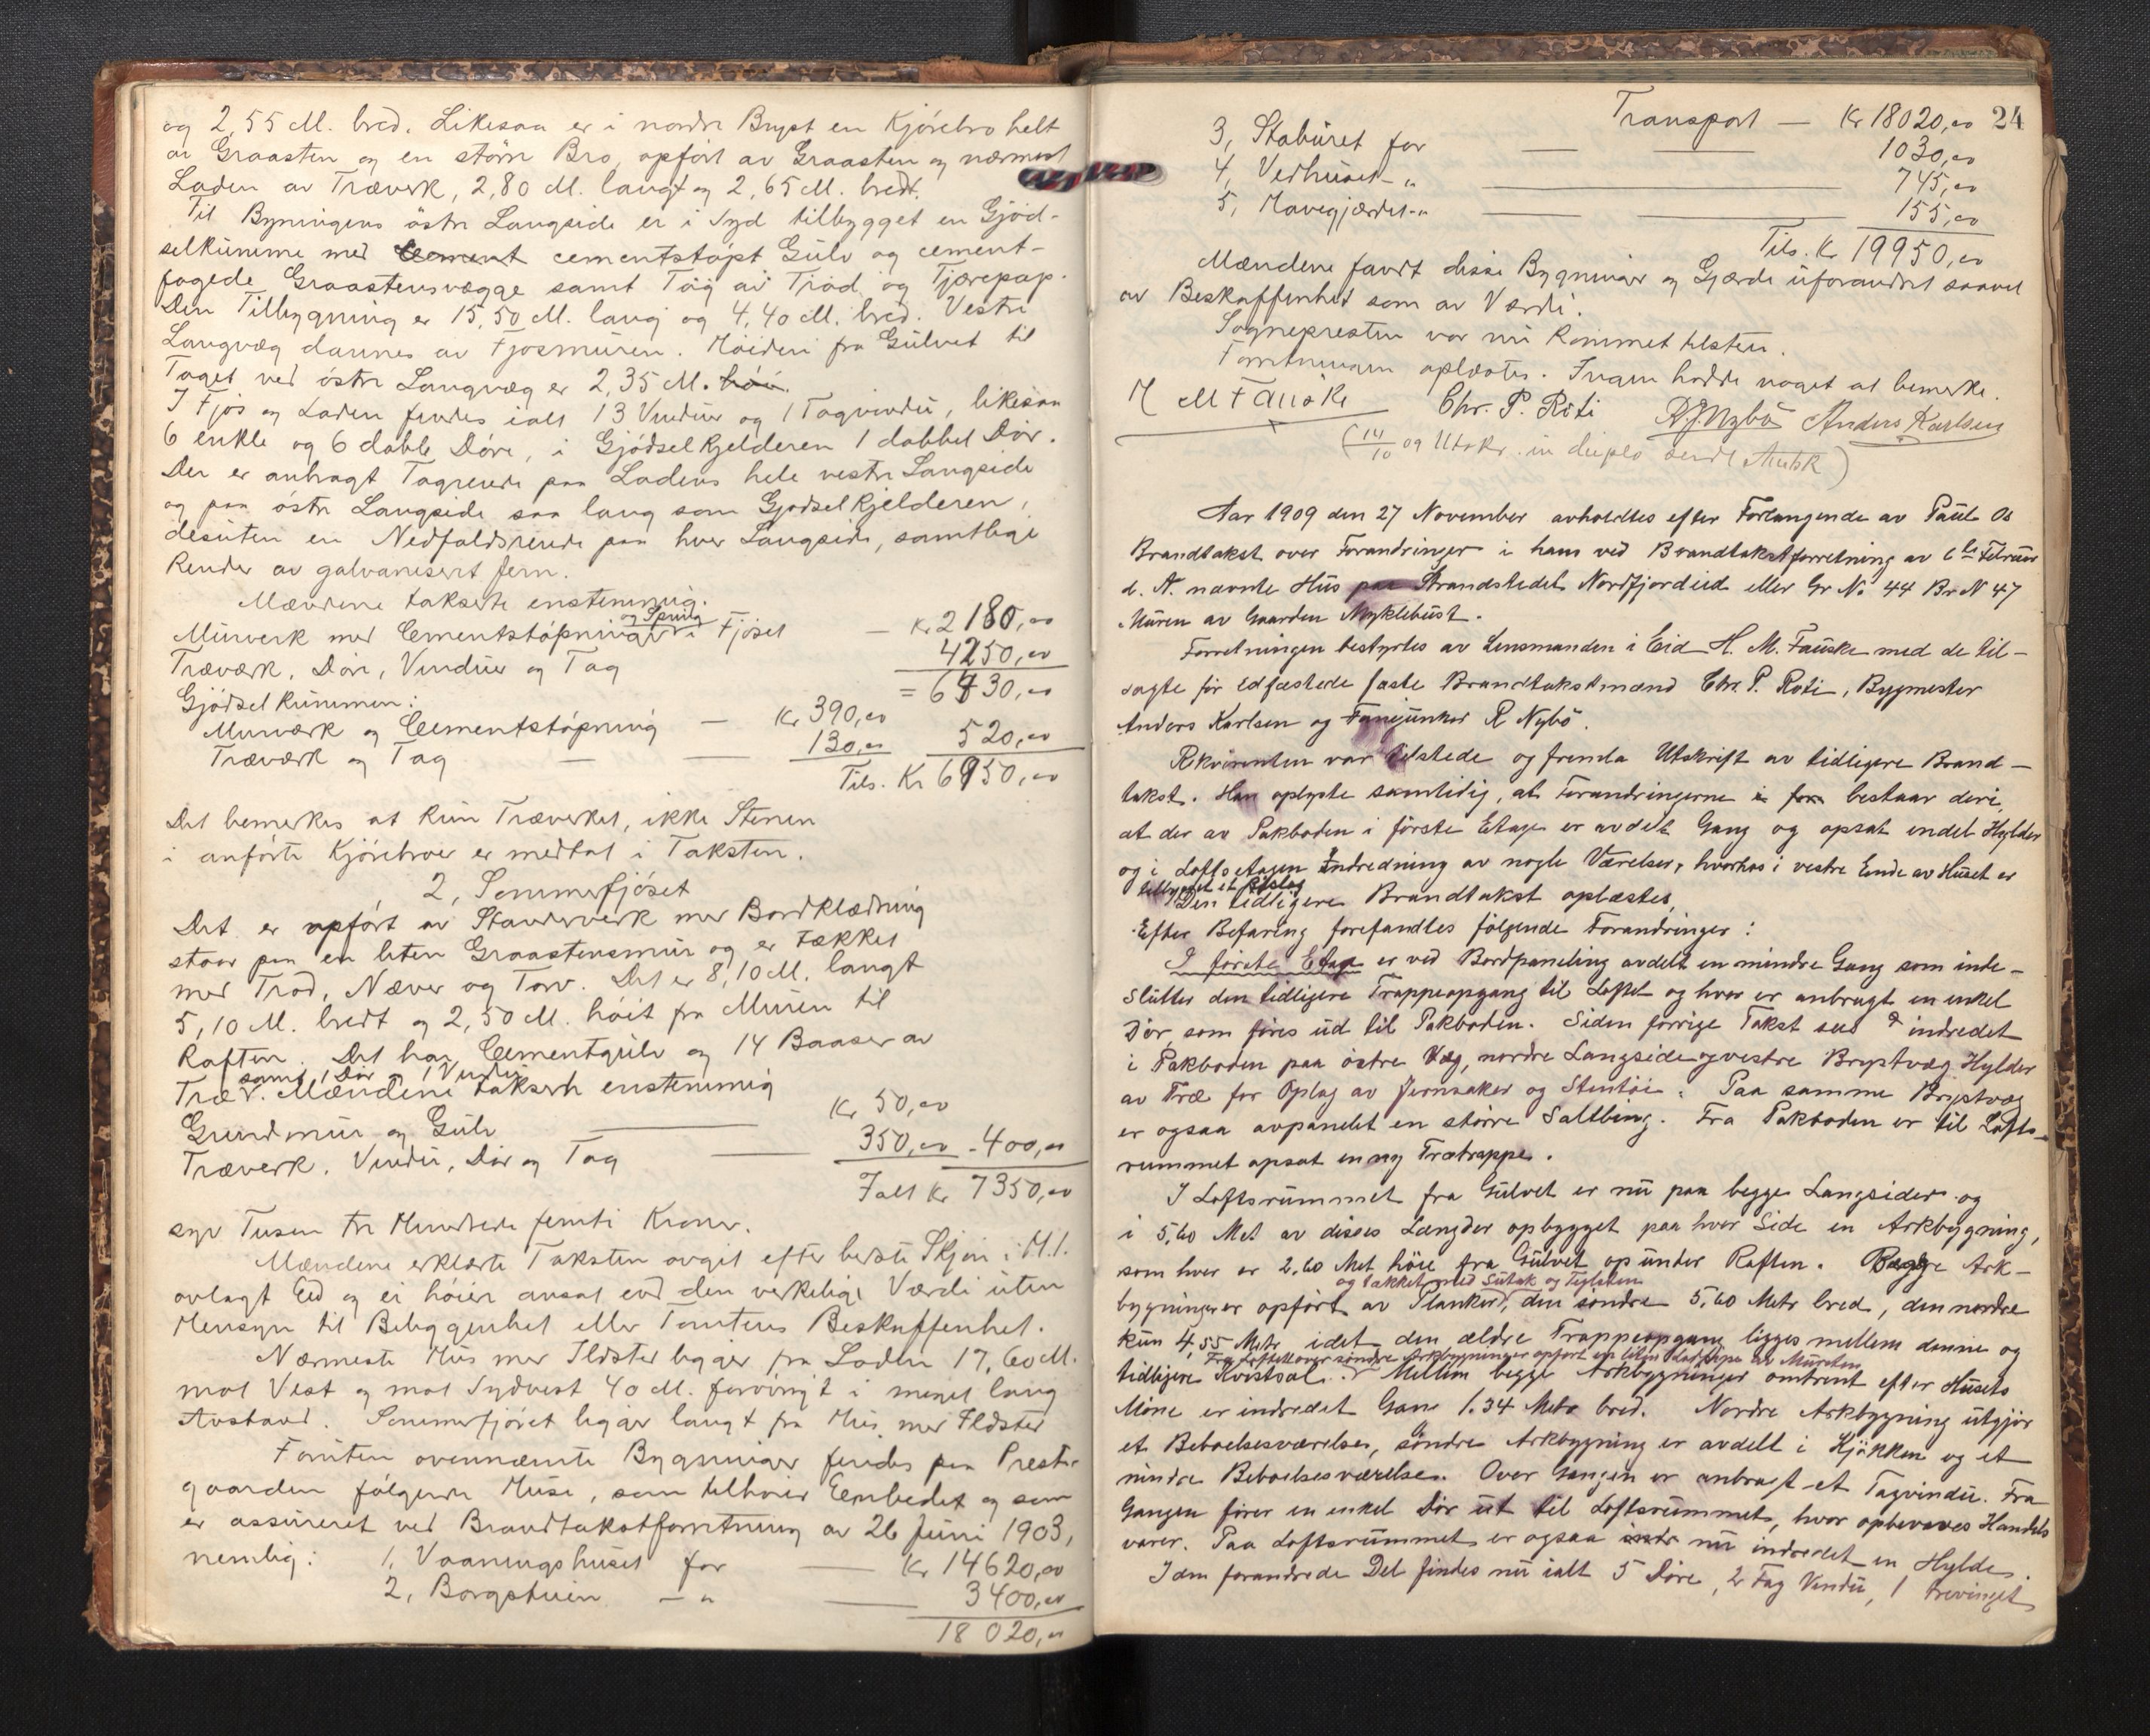 og 2,55 M. bred. Likesaa er i nordre Bryst en Kjørebro helt
av Graasten og en større Bro, opført av Graasten og nærmest
Laden av Træverk, 2,80 M. langt og 2,65 M. bredt.
Til Bygningens østre Langside er i Syd tilbygget en Gjød-
selkumme med Cement cementstøpt Gulv og cement-
fogede Graastensvægge samt Tag av Trod og Tjærepap.
Den Tilbygning er 15,50 M. lang og 4,40 M. bred. Vestre
Langvæg dannes av Fjøsmuren. Høiden fra Gulvet til
Taget ved østre Langvæg er 2,35 M. høi.
I Fjøs og Laden findes ialt 13 Vinduer og 1 Tagvindu, likesaa
6 enkle og 6 doble Døre, i Gjødselkjelderen 1 dobbel Dør.
Der er anbragt Tagrende paa Ladens hele vestre Langside
og paa østre Langside saa lang som Gjødselkjelderen,
desuten en Nedfaldsrende paa hver Langside, samtlige
Render av galvanisert Jern.
Mændene takserte enstemmig:
og Spring
Murverk med Cementstøpninger i Fjøset — Kr 2180,00
Træværk, Døre, Vinduer og Tag 4250,00
= 6430,00
Gjødselkummen:
Murværk og Cementstøpning — Kr 390,00
Træværk og Tag — — 130,00 520,00
Tils. Kr 6950,00
Det bemerkes at kun Træverket, ikke Stenen
i anførte Kjørebroer er medtat i Taksten.
2, Sommerfjøset
Det er opført av Stavververk med Bordklædning
staar paa en liten Graastensmur og er tækket
med Trod, Næver og Torv. Det er 8,10 M. langt
5,10 M. bredt og 2,50 M. høit fra Muren til
Raften. Det har Cementgulv og 14 Baaser av
samt 1 Dør og 1 Vindu
Træ. Mændene takserte enstemmig
Grundmur og Gulv — Kr 50,00
Træverk, Vindu, Dør og Tag — 350,00 - 400,00
Ialt Kr 7350,00
syv Tusen tre Hundrede femti Kroner.
Mændene erklærte Taksten avgit efter beste Skjøn i H.t.
avlagt Eed og ei høiere ansat end den verkelige Værdi uten
Hensyn til Beliggenhet eller Tomtens Beskaffenhet.
Nærmeste Hus med Ildsted ligger fra Laden 17,60 M.
mot Vest og mot Sydvest 40 M. forøvrigt i meget lang
Avstand. Sommerfjøset ligger langt fra Hus med Ildsted
Foruten ovennævnte Bygninger findes paa Preste-
gaarden følgende Huse, som tilhører Eembedet og som
er assureret ved Brandtakstforretning av 26 Juni 1903,
nemlig: 1, Vaaningshuset for — Kr 14620,00
2, Borgstuen — " — 3400,00
18 020,00
24
Transport — Kr 18020,00
3, Staburet for — — 1030,00
4, Vedhuset — " — 745,00
5, Havegjærdet — " — — 155,00
Tils. Kr 19950,00
Mændene fandt disse Bygninger og Gjærde uforandret saavel
av Beskaffenhet som av Værdi.
Sognepresten var nu kommet tilstede.
Forretningen oplæstes. Ingen hadde noget at bemerke.
H M Fauske Chr. P. Roti R. Nybø Anders Karlsen
(14/10 09 Utskr. in duplo sendt Amtsk)
Aar 1909 den 27 November avholdtes efter Forlangende av Paul Os
Brandtakst over Forandringer i hans ved Brandtakstforretning av 6te Februar
d. A. nævnte Hus paa Strandstedet Nordfjordeid eller Gr No 44 Br N 47
Muren av Gaarden Myklebust.
Forretningen bestyrtes av Lensmanden i Eid H. M. Fauske med de til-
sagte før edfæstede faste Brandtakstmænd Chr. P. Roti, Bygmester
Anders Karlsen og Fanejunker R Nybø.
Rkvirenten var tilstede og fremla Utskrift av tidligere Brand-
takst. Han oplyste samtidig, at Forandringerne i for bestaar deri,
at der av Pakboden i første Etage er avdelt Gang og opsat endel Hylder
og i Loftsetagen Indredning av nogle Værelser, hvorhos i vestre Ende av Huset er
tilbygget et Bislag
Den tidligere Brandtakst oplæstes.
Efter Befaring forefandtes følgende Forandringer:
I første Etage er ved Bordpaneling avdelt en mindre Gang som inde-
slutter den tidligere Trappeopgang til Loftet og hvor er anbragt en enkel
Dør, som føres ud til Pakboden. Siden forrige Takst sees indredet
i Pakboden paa østre Væg, nordre Langside og vestre Brystvæg Hylder
av Træ for Oplag av Jernsaker og Stentøi. Paa samme Brystvæg
er ogsaa avpanelet en større Saltbing. Fra Pakboden er til Lofts-
rummet opsat en ny Trætrappe.
I Loftsrummet fra Gulvet er nu paa begge Langsider og
i 5,60 Met av disses Længder opbygget paa hver Side en Arkbygning,
som hver er 2,60 Met høie fra Gulvet op under Raften. Begge Ark-
og tækket med Sutak og Teglsten
bygninger er opført av Planker, den søndre 5,60 Metr bred, den nordre
kun 4,55 Metr idet den ældre Trappeopgang ligges mellem denne og
tidligere Kvistsal. Mellem begge Arkbygninger omtrent efter Husets
Møne er indredet Gang 1.34 Metr bred. Nordre Arkbygning utgjør
et Beboelsesværelse, søndre Arkbygning er avdelt i Kjøkken og et
mindre Beboelsesværelse. Over Gangen er anbragt et Tagvindu. Fra
Gangen fører en enkel Dør ut til Loftsrummet, hvor opbevares Handels
varer. Paa Loftsrummet er ogsaa indr nu indredet en Hylde.
I den forandrede Del findes nu ialt 5 Døre, 2 Fag Vindu, 1 trevinget